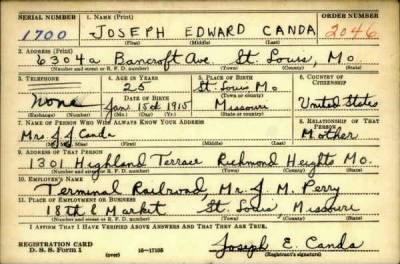 SERIAL NUMBER 1. NAME (Print) ORDER NUMBER
1700 JOSEPH EDWARD CANDA 2046
(First) (Middle) (Last)
2. ADDRESS (Print)
6304a Bancroft Ave. St. Louis, Mo
(Number and street or R. F. D. number) (Town) (County) (State)
3. TELEPHONE 4. AGE IN YEARS 5. PLACE OF BIRTH 6. COUNTRY OF CITIZENSHIP
25 St. Louis Mo
DATE OF BIRTH (Town or county)
None Jan 15 1915 Missouri United States
(Exchange) (Number) (Mo.) (Day) (Yr.) (State or country)
7. NAME OF PERSON WHO WILL ALWAYS KNOW YOUR ADDRESS 8. RELATIONSHIP OF THAT PERSON
Mrs. J. J. Canda Mother
(Mr., Mrs., Miss) (First) (Middle) (Last)
9. ADDRESS OF THAT PERSON
1301 Highland Terrace Richmond Heights Mo.
(Number and street or R. F. D. number) (Town) (County) (State)
10. EMPLOYER'S NAME
Terminal Railroad, Mr. J. M. Perry
11. PLACE OF EMPLOYMENT OR BUSINESS
18th & Market St. Louis, Missouri
(Number and street or R. F. D. number) (Town) (County) (State)
I AFFIRM THAT I HAVE VERIFIED ABOVE ANSWERS AND THAT THEY ARE TRUE.
REGISTRATION CARD Joseph E. Canda
D. S. S. Form 1 (over) 16—17105 (Registrant's signature)